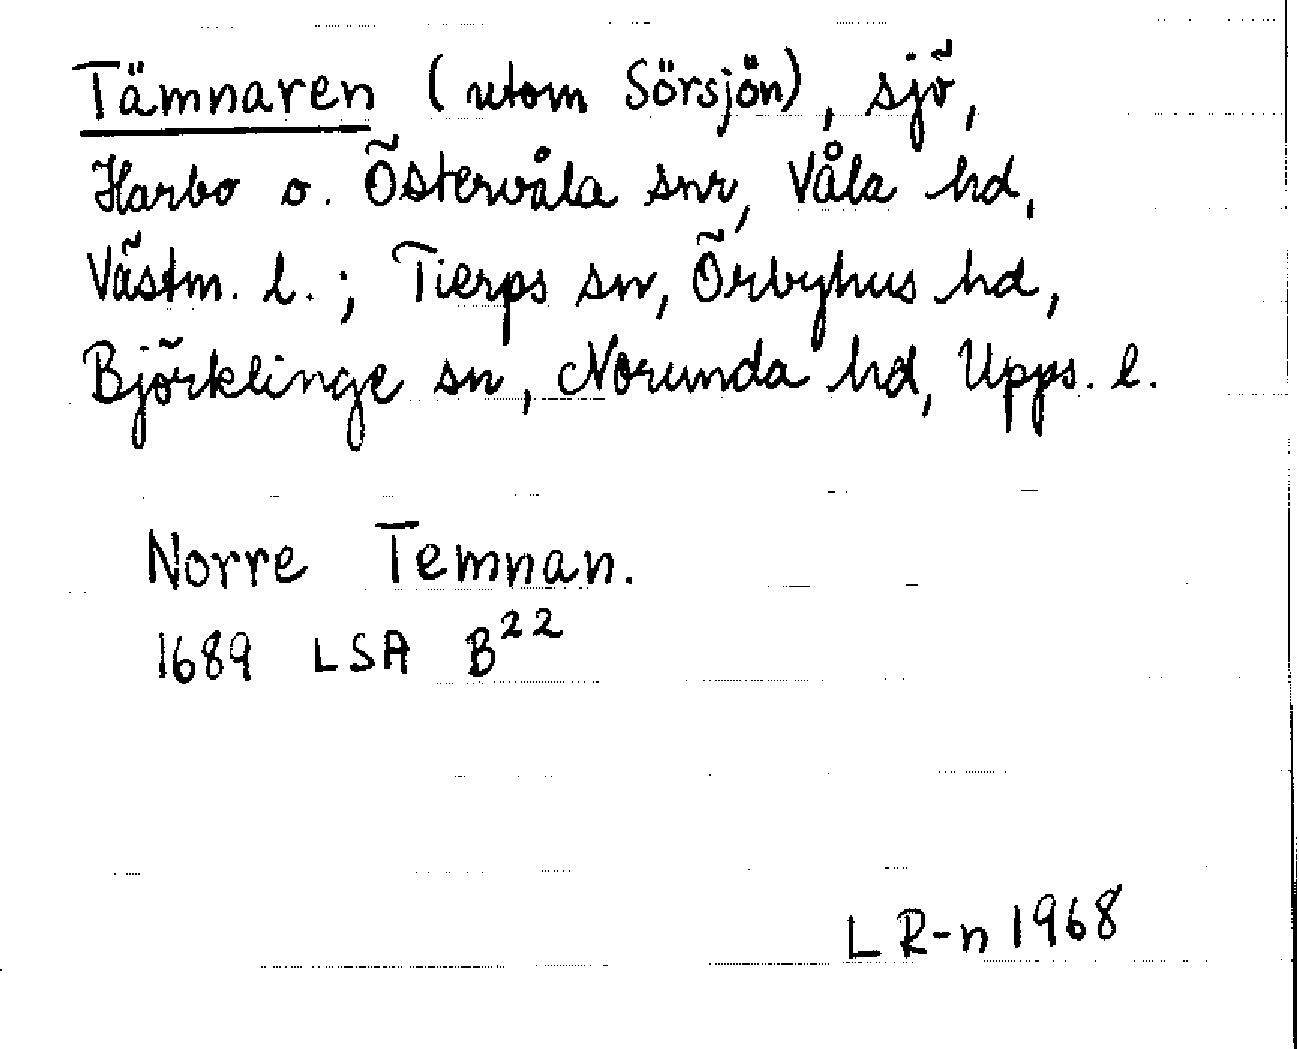 Tämnaren (utom Sörsjön), sjö,
Harbo o. Östervåla snr, Våla hd,
Västm. l.; Tierps sn, Örbyhus hd,
Björklinge sn, Norunda hd, Upps. l.
Norre Temnan.
1689 LSA B²²
L R-n 1968